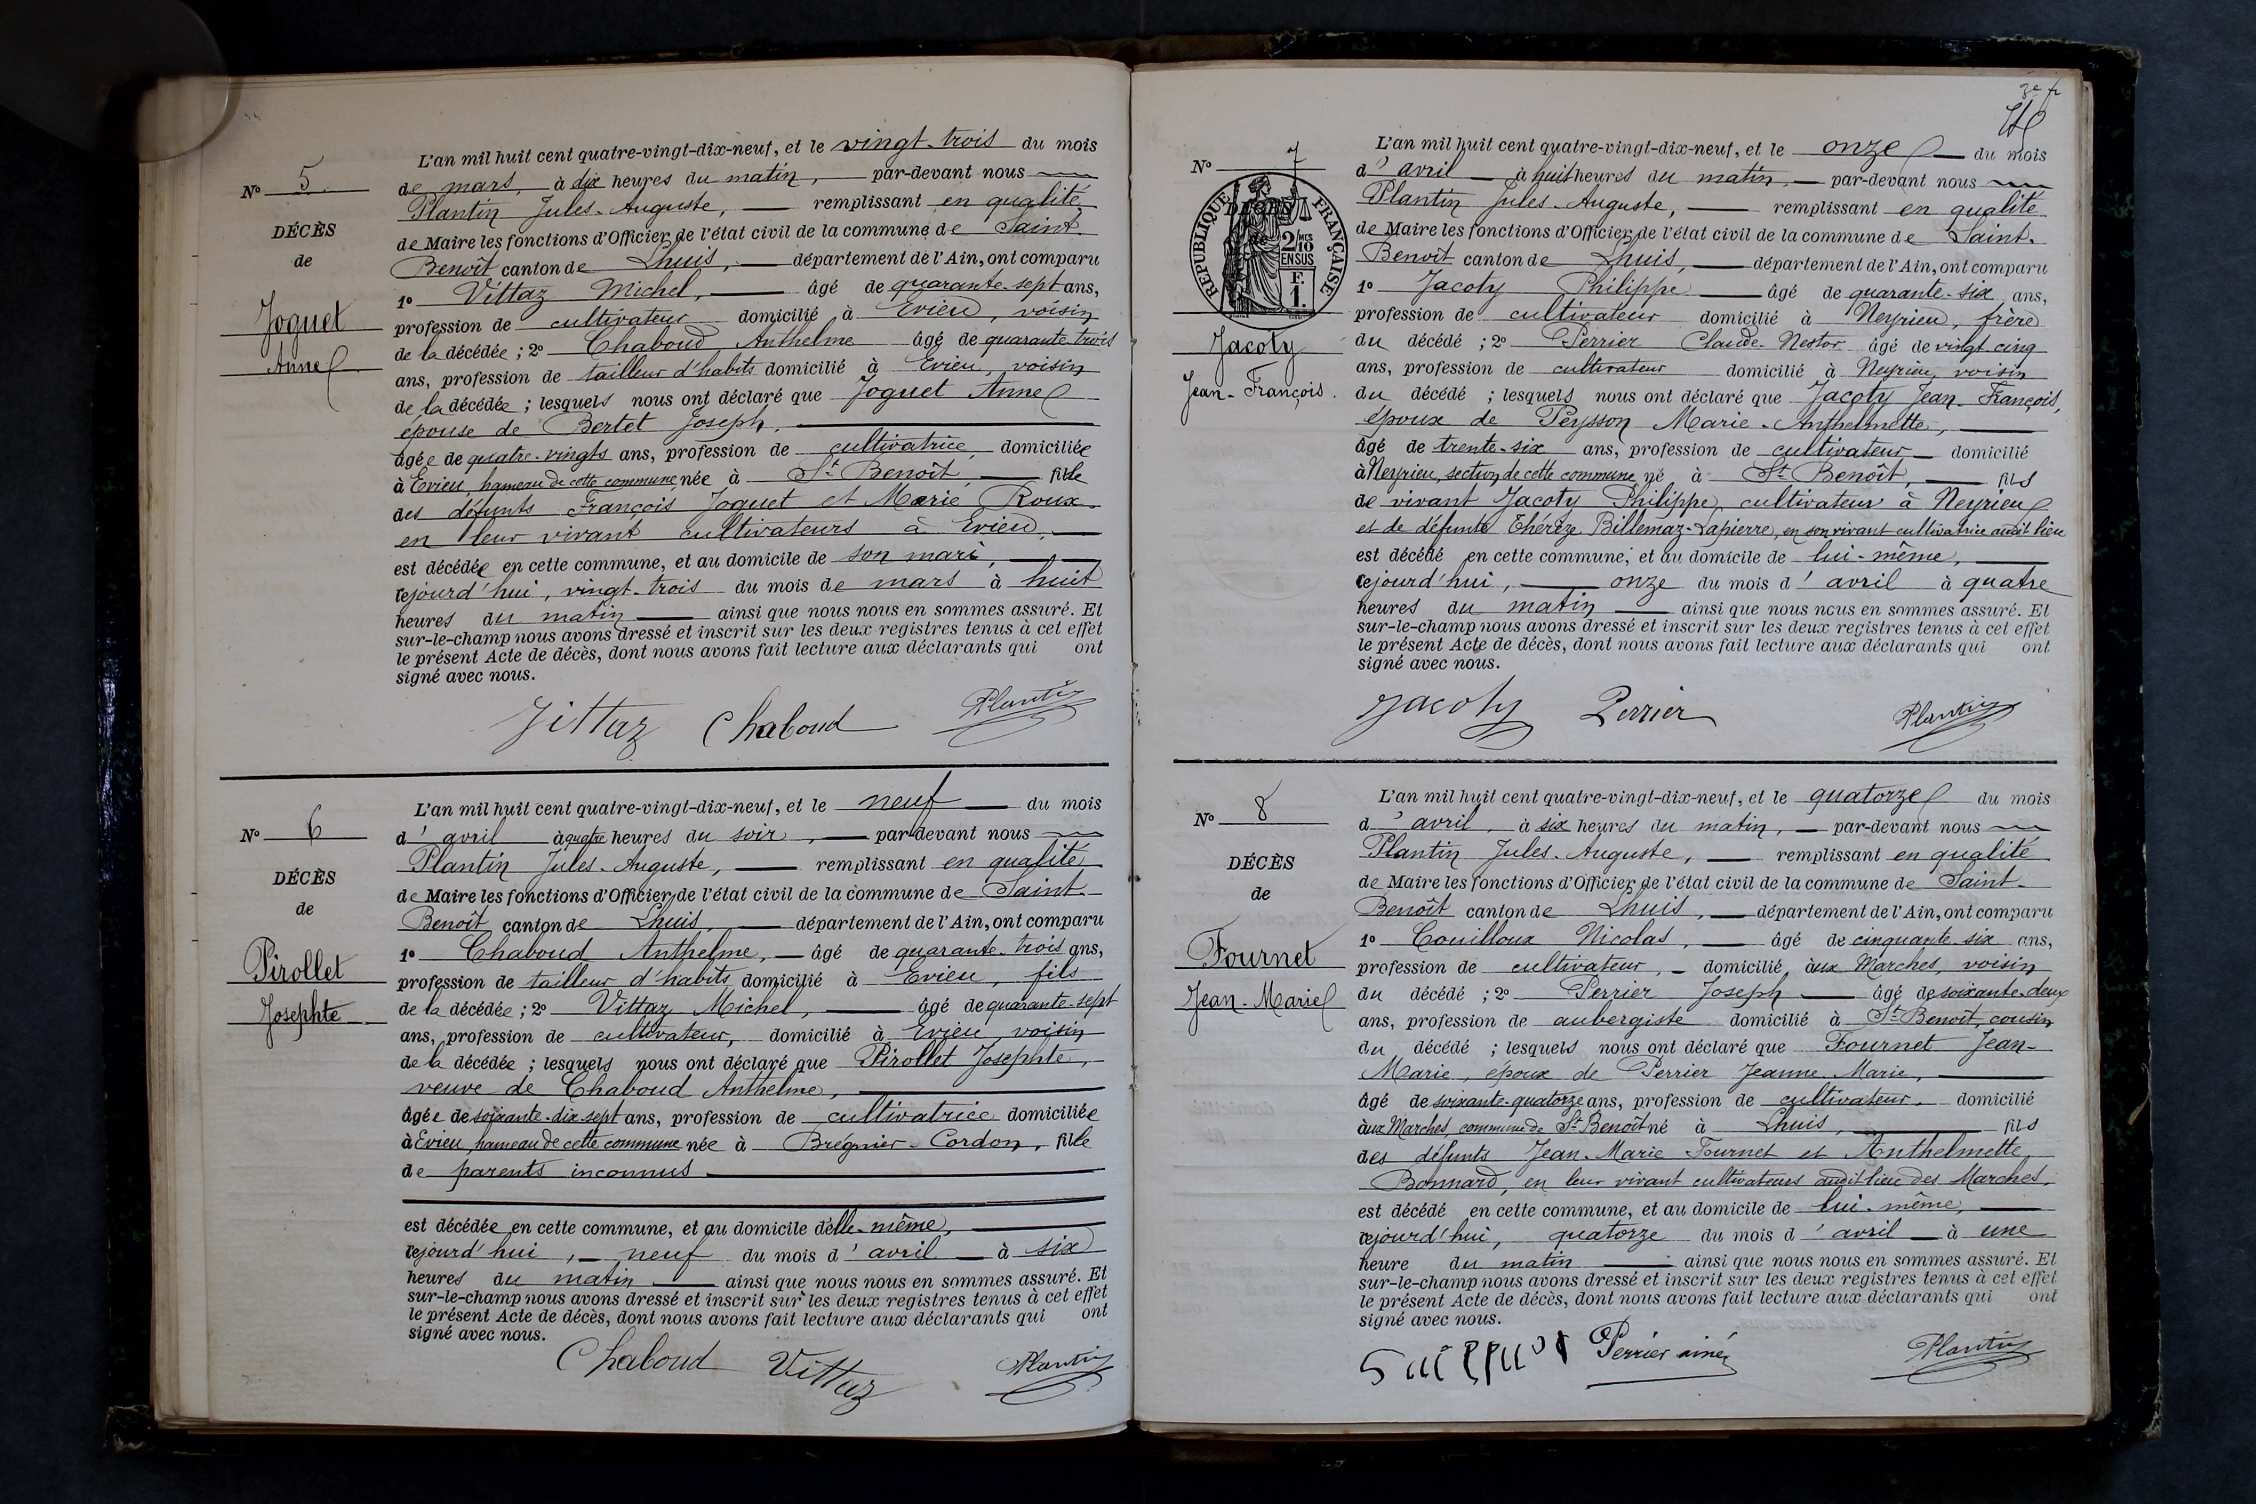 N° 5
DÉCÈS
de
Joguet
Anne
L'an mil huit cent quatre-vingt-dix-neuf, et le vingt-trois du mois
de mars, à dix heures du matin, par-devant nous
Plantin Jules-Auguste, remplissant en qualité
de Maire les fonctions d'Officier de l'état civil de la commune de Saint-
Benoît canton de Lhuis, département de l'Ain, ont comparu
1° Vittaz Michel, âgé de quarante-sept ans,
profession de cultivateur domicilié à Evieu, voisin
de la décédée ; 2° Chaboud Anthelme âgé de quarante trois
ans, profession de tailleur d'habits domicilié à Evieu, voisin
de la décédée ; lesquels nous ont déclaré que Joguet Anne
épouse de Bertet Joseph,
âgée de quatre-vingts ans, profession de cultivatrice, domiciliée
à Evieu, hameau de cette commune née à St Benoît, fille
des défunts François Joguet et Marie Roux
en leur vivant cultivateurs à Evieu,
est décédée en cette commune, et au domicile de son mari,
cejourd'hui, vingt-trois du mois de mars à huit
heures du matin ainsi que nous nous en sommes assuré. Et
sur-le-champ nous avons dressé et inscrit sur les deux registres tenus à cet effet
le présent Acte de décès, dont nous avons fait lecture aux déclarants qui ont
signé avec nous.
Vittaz Chaboud Plantin
N° 6
DÉCÈS
de
Pirollet
Josephte
L'an mil huit cent quatre-vingt-dix-neuf, et le neuf du mois
d'avril à quatre heures du soir, par-devant nous
Plantin Jules-Auguste, remplissant en qualité
de Maire les fonctions d'Officier de l'état civil de la commune de Saint-
Benoît canton de Lhuis, département de l'Ain, ont comparu
1° Chaboud Anthelme, âgé de quarante-trois ans,
profession de tailleur d'habits domicilié à Evieu, fils
de la décédée ; 2° Vittaz Michel, âgé de quarante-sept
ans, profession de cultivateur, domicilié à Evieu, voisin
de la décédée ; lesquels nous ont déclaré que Pirollet Josephte,
veuve de Chaboud Anthelme,
âgée de soixante-dix-sept ans, profession de cultivatrice domiciliée
à Evieu, hameau de cette commune née à Brégnier-Cordon, fille
de parents inconnus
est décédée en cette commune, et au domicile d'elle-même,
cejourd'hui, neuf du mois d'avril à six
heures du matin ainsi que nous nous en sommes assuré. Et
sur-le-champ nous avons dressé et inscrit sur les deux registres tenus à cet effet
le présent Acte de décès, dont nous avons fait lecture aux déclarants qui ont
signé avec nous.
Chaboud Vittaz Plantin
N° 7
RÉPUBLIQUE FRANÇAISE
2/10 MES
EN SUS
F.
1.
Jacoty
Jean-François.
L'an mil huit cent quatre-vingt-dix-neuf, et le onze du mois
d'avril à huit heures du matin, par-devant nous
Plantin Jules-Auguste, remplissant en qualité
de Maire les fonctions d'Officier de l'état civil de la commune de Saint-
Benoît canton de Lhuis, département de l'Ain, ont comparu
1° Jacoty Philippe âgé de quarante-six ans,
profession de cultivateur domicilié à Neyrieu, frère
du décédé ; 2° Perrier Claude-Nestor âgé de vingt cinq
ans, profession de cultivateur domicilié à Neyrieu, voisin
du décédé ; lesquels nous ont déclaré que Jacoty Jean-François,
époux de Peysson Marie-Anthelmette,
âgé de trente-six ans, profession de cultivateur domicilié
à Neyrieu, section de cette commune né à St Benoît, fils
de vivant Jacoty Philippe, cultivateur à Neyrieu
et de défunte Thérèze Billemaz-Lapierre, en son vivant cultivatrice audit lieu
est décédé en cette commune, et au domicile de lui-même,
cejourd'hui, onze du mois d'avril à quatre
heures du matin ainsi que nous nous en sommes assuré. Et
sur-le-champ nous avons dressé et inscrit sur les deux registres tenus à cet effet
le présent Acte de décès, dont nous avons fait lecture aux déclarants qui ont
signé avec nous.
Jacoty Perrier Plantin
N° 8
DÉCÈS
de
Fournet
Jean-Marie
L'an mil huit cent quatre-vingt-dix-neuf, et le quatorze du mois
d'avril, à six heures du matin, par-devant nous
Plantin Jules-Auguste, remplissant en qualité
de Maire les fonctions d'Officier de l'état civil de la commune de Saint-
Benoît canton de Lhuis, département de l'Ain, ont comparu
1° Couilloux Nicolas, âgé de cinquante-six ans,
profession de cultivateur, domicilié aux Marches, voisin
du décédé ; 2° Perrier Joseph âgé de soixante-deux
ans, profession de aubergiste domicilié à St Benoît, cousin
du décédé ; lesquels nous ont déclaré que Fournet Jean-
Marie, époux de Perrier Jeanne-Marie,
âgé de soixante-quatorze ans, profession de cultivateur, domicilié
aux Marches, commune de St Benoît né à Lhuis, fils
des défunts Jean-Marie Fournet et Anthelmette
Bonnard, en leur vivant cultivateurs audit lieu des Marches,
est décédé en cette commune, et au domicile de lui-même,
cejourd'hui, quatorze du mois d'avril à une
heure du matin ainsi que nous nous en sommes assuré. Et
sur-le-champ nous avons dressé et inscrit sur les deux registres tenus à cet effet
le présent Acte de décès, dont nous avons fait lecture aux déclarants qui ont
signé avec nous.
Perrier ainé Plantin